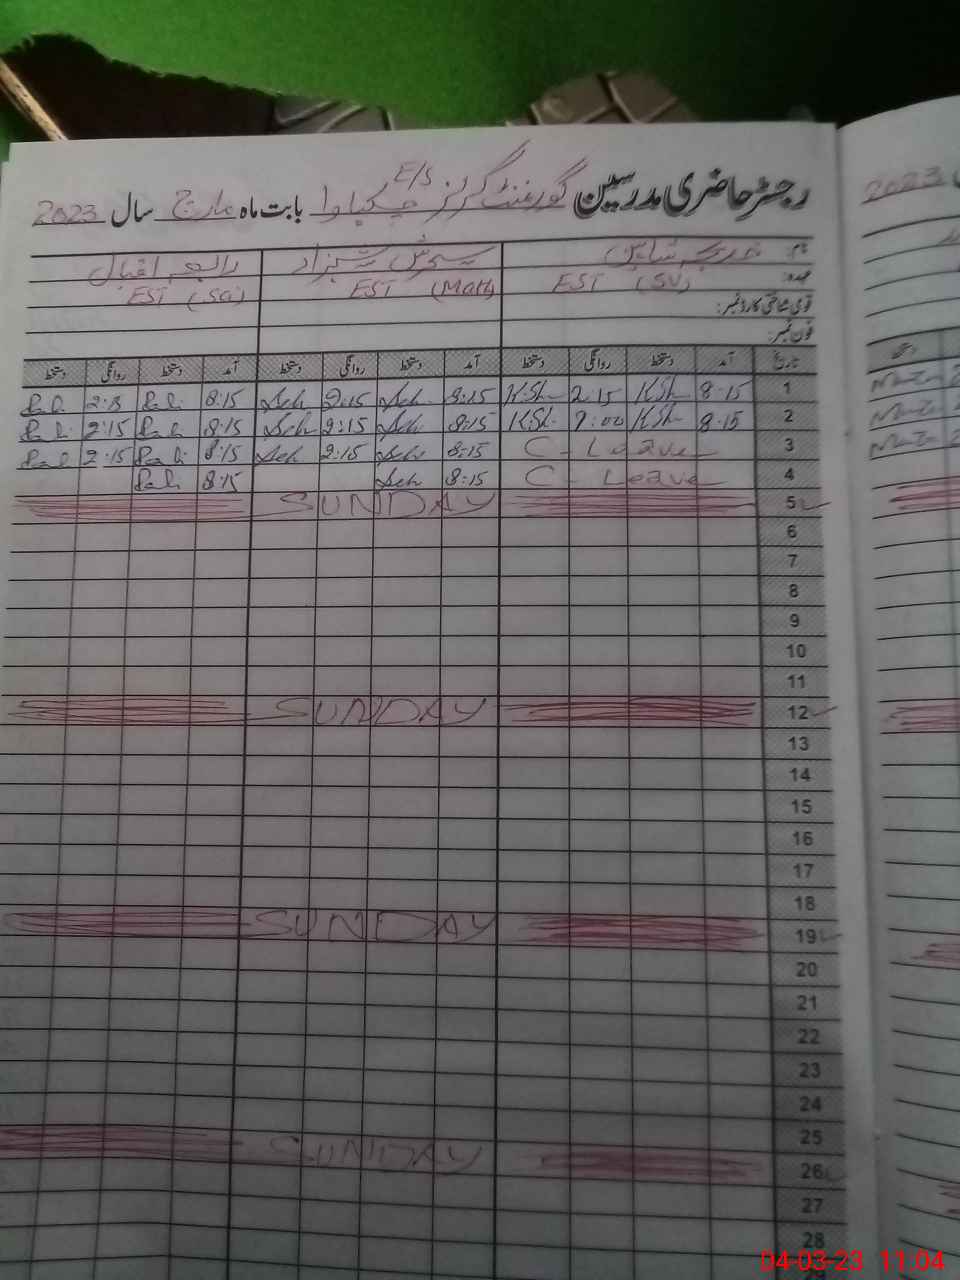 رجسٹر حاضری مدرسین گورنمنٹ گرلز E/S چکباوا بابت ماہ مارچ سال 2023
نام: شاہین سحرش شہزاد رابعہ اقبال
عہدہ: EST (SV) EST (Math) EST (Sci)
قومی شناختی کارڈ نمبر:
فون نمبر:
تاریخ آمد دستخط روانگی دستخط آمد دستخط روانگی دستخط آمد دستخط روانگی دستخط
1 8-15 KSh 2:15 KSh 8:15 Seh 2:15 Seh 8:15
2 8-15 KSh 2:00 KSh 8:15 Seh 2:15 Seh 8:15 2:15
3 C-Leave 8:15 Seh 2:15 Seh 8:15 2:15
4 C-Leave 8:15 Seh 8:15
5 SUNDAY
6
7
8
9
10
11
12 SUNDAY
13
14
15
16
17
18
19 SUNDAY
20
21
22
23
24
25
26 SUNDAY
27
28
2023
04-03-23 11:04